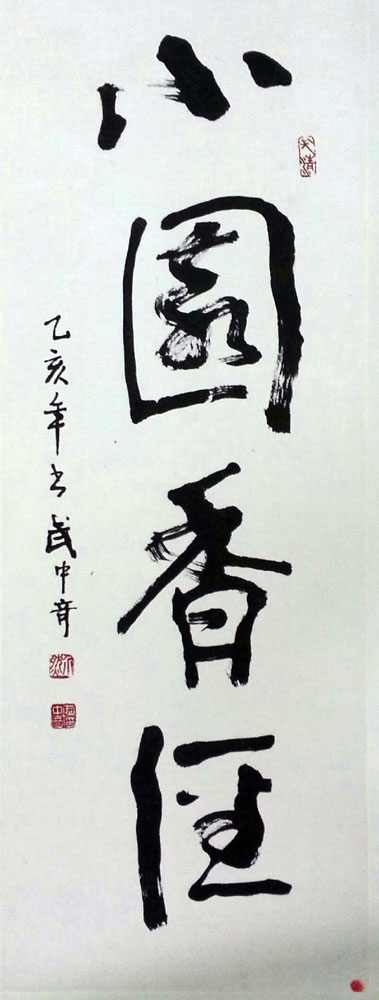 小園香径
乙亥年书武中奇